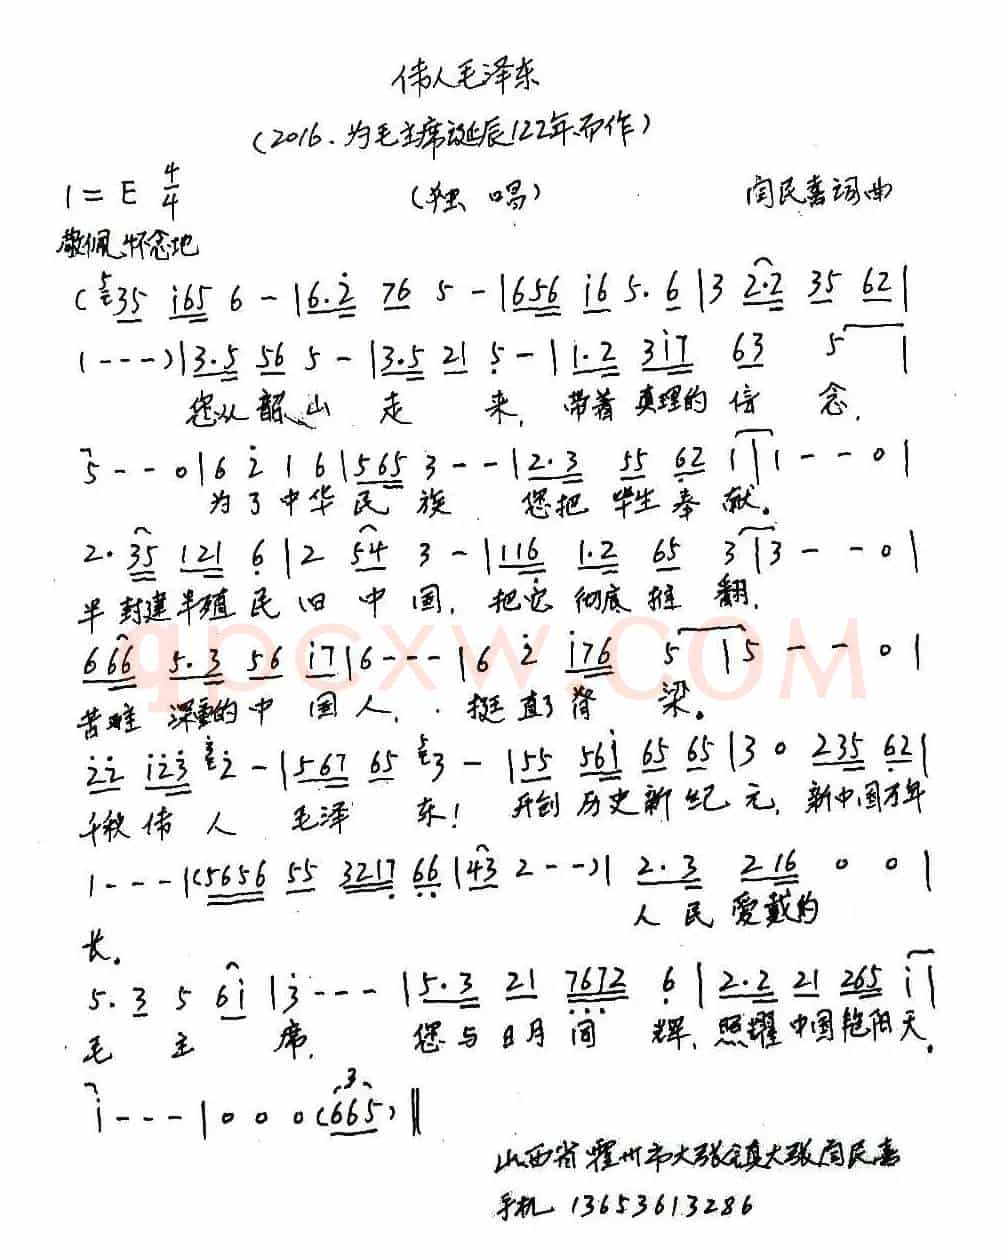 伟人毛泽东
(2016.为毛主席诞辰122年而作)
1=E 4/4 (独 唱) 闫民喜词曲
敬佩怀念地
(35 i65 6 - | 6.2 76 5 - | 656 i6 5. 6 | 3 2.2 35 62 |
1 - - - ) | 3.5 56 5 - | 3.5 21 5 - | 1.2 3i7 63 5 |
您从韶山 走 来, 带着 真理的 信 念,
5 - - 0 | 6 2 1 6 | 565 3 - - | 2.3 55 62 1 | 1 - - 0 |
为了中华民 族 您把 毕生奉 献。
2. 35 121 6 | 2 54 3 - | 116 1.2 65 3 | 3 - - 0 |
半封建半殖民旧中国, 把它彻底推翻,
666 5.3 56 i7 | 6 - - - | 6 2 i76 5 | 5 - - 0 |
苦难 深重的中国人, 挺直了脊 梁。
22 i23 2 - | 567 65 3 - | 55 56i 65 65 | 3 0 235 62 |
千秋伟人 毛泽 东! 开创历史新纪元, 新中国万年
1 - - - | (5656 55 3217 66 | 43 2 - - ) | 2.3 216 0 0 |
长。 人民爱戴的
5. 3 5 6i | 3 - - - | 5.3 21 7672 6 | 2.2 21 265 i |
毛 主 席, 您与日月同 辉, 照耀中国艳阳天。
i - - - | 0 0 0 (665) ‖
3
山西省霍州市大张镇大张闫民喜
手机 13653613286
qpcxw.COM